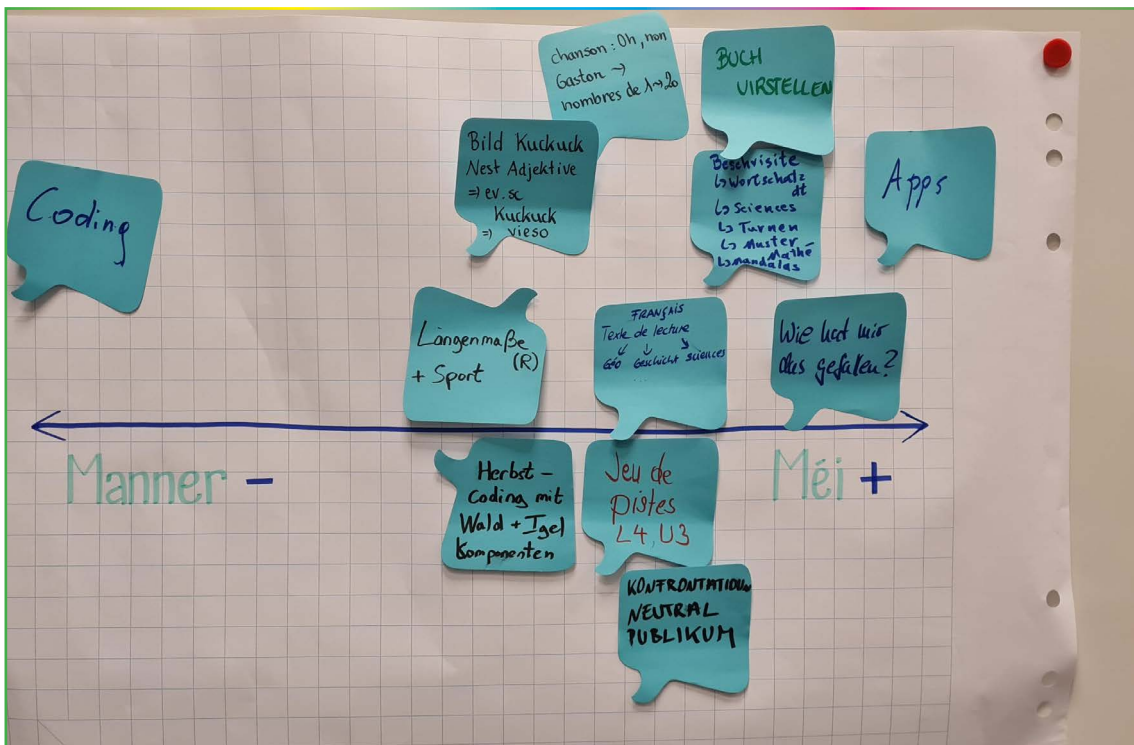 chanson: Oh, non
Gaston →
nombres de 1→20
BUCH
VIRSTELLEN
Bild Kuckuck
Nest Adjektive
⇒ ev. sc
Kuckuck
⇒ vieso
Beschrisite
↳ Wortschatz
dt
↳ Sciences
↳ Turnen
↳ Muster
Mathé
↳ Mandalas
Apps
Coding
Längenmaße
(R)
+ Sport
FRANÇAIS
Texte de lecture
↙ ↓ ↘
Géo Geschicht sciences
...
Wie hat mir
das gefallen?
Manner -
Méi +
Herbst -
Coding mit
Wald + Igel
Komponenten
Jeu de
pistes
L4, U3
KONFRONTATIOUN
NEUTRAL
PUBLIKUM